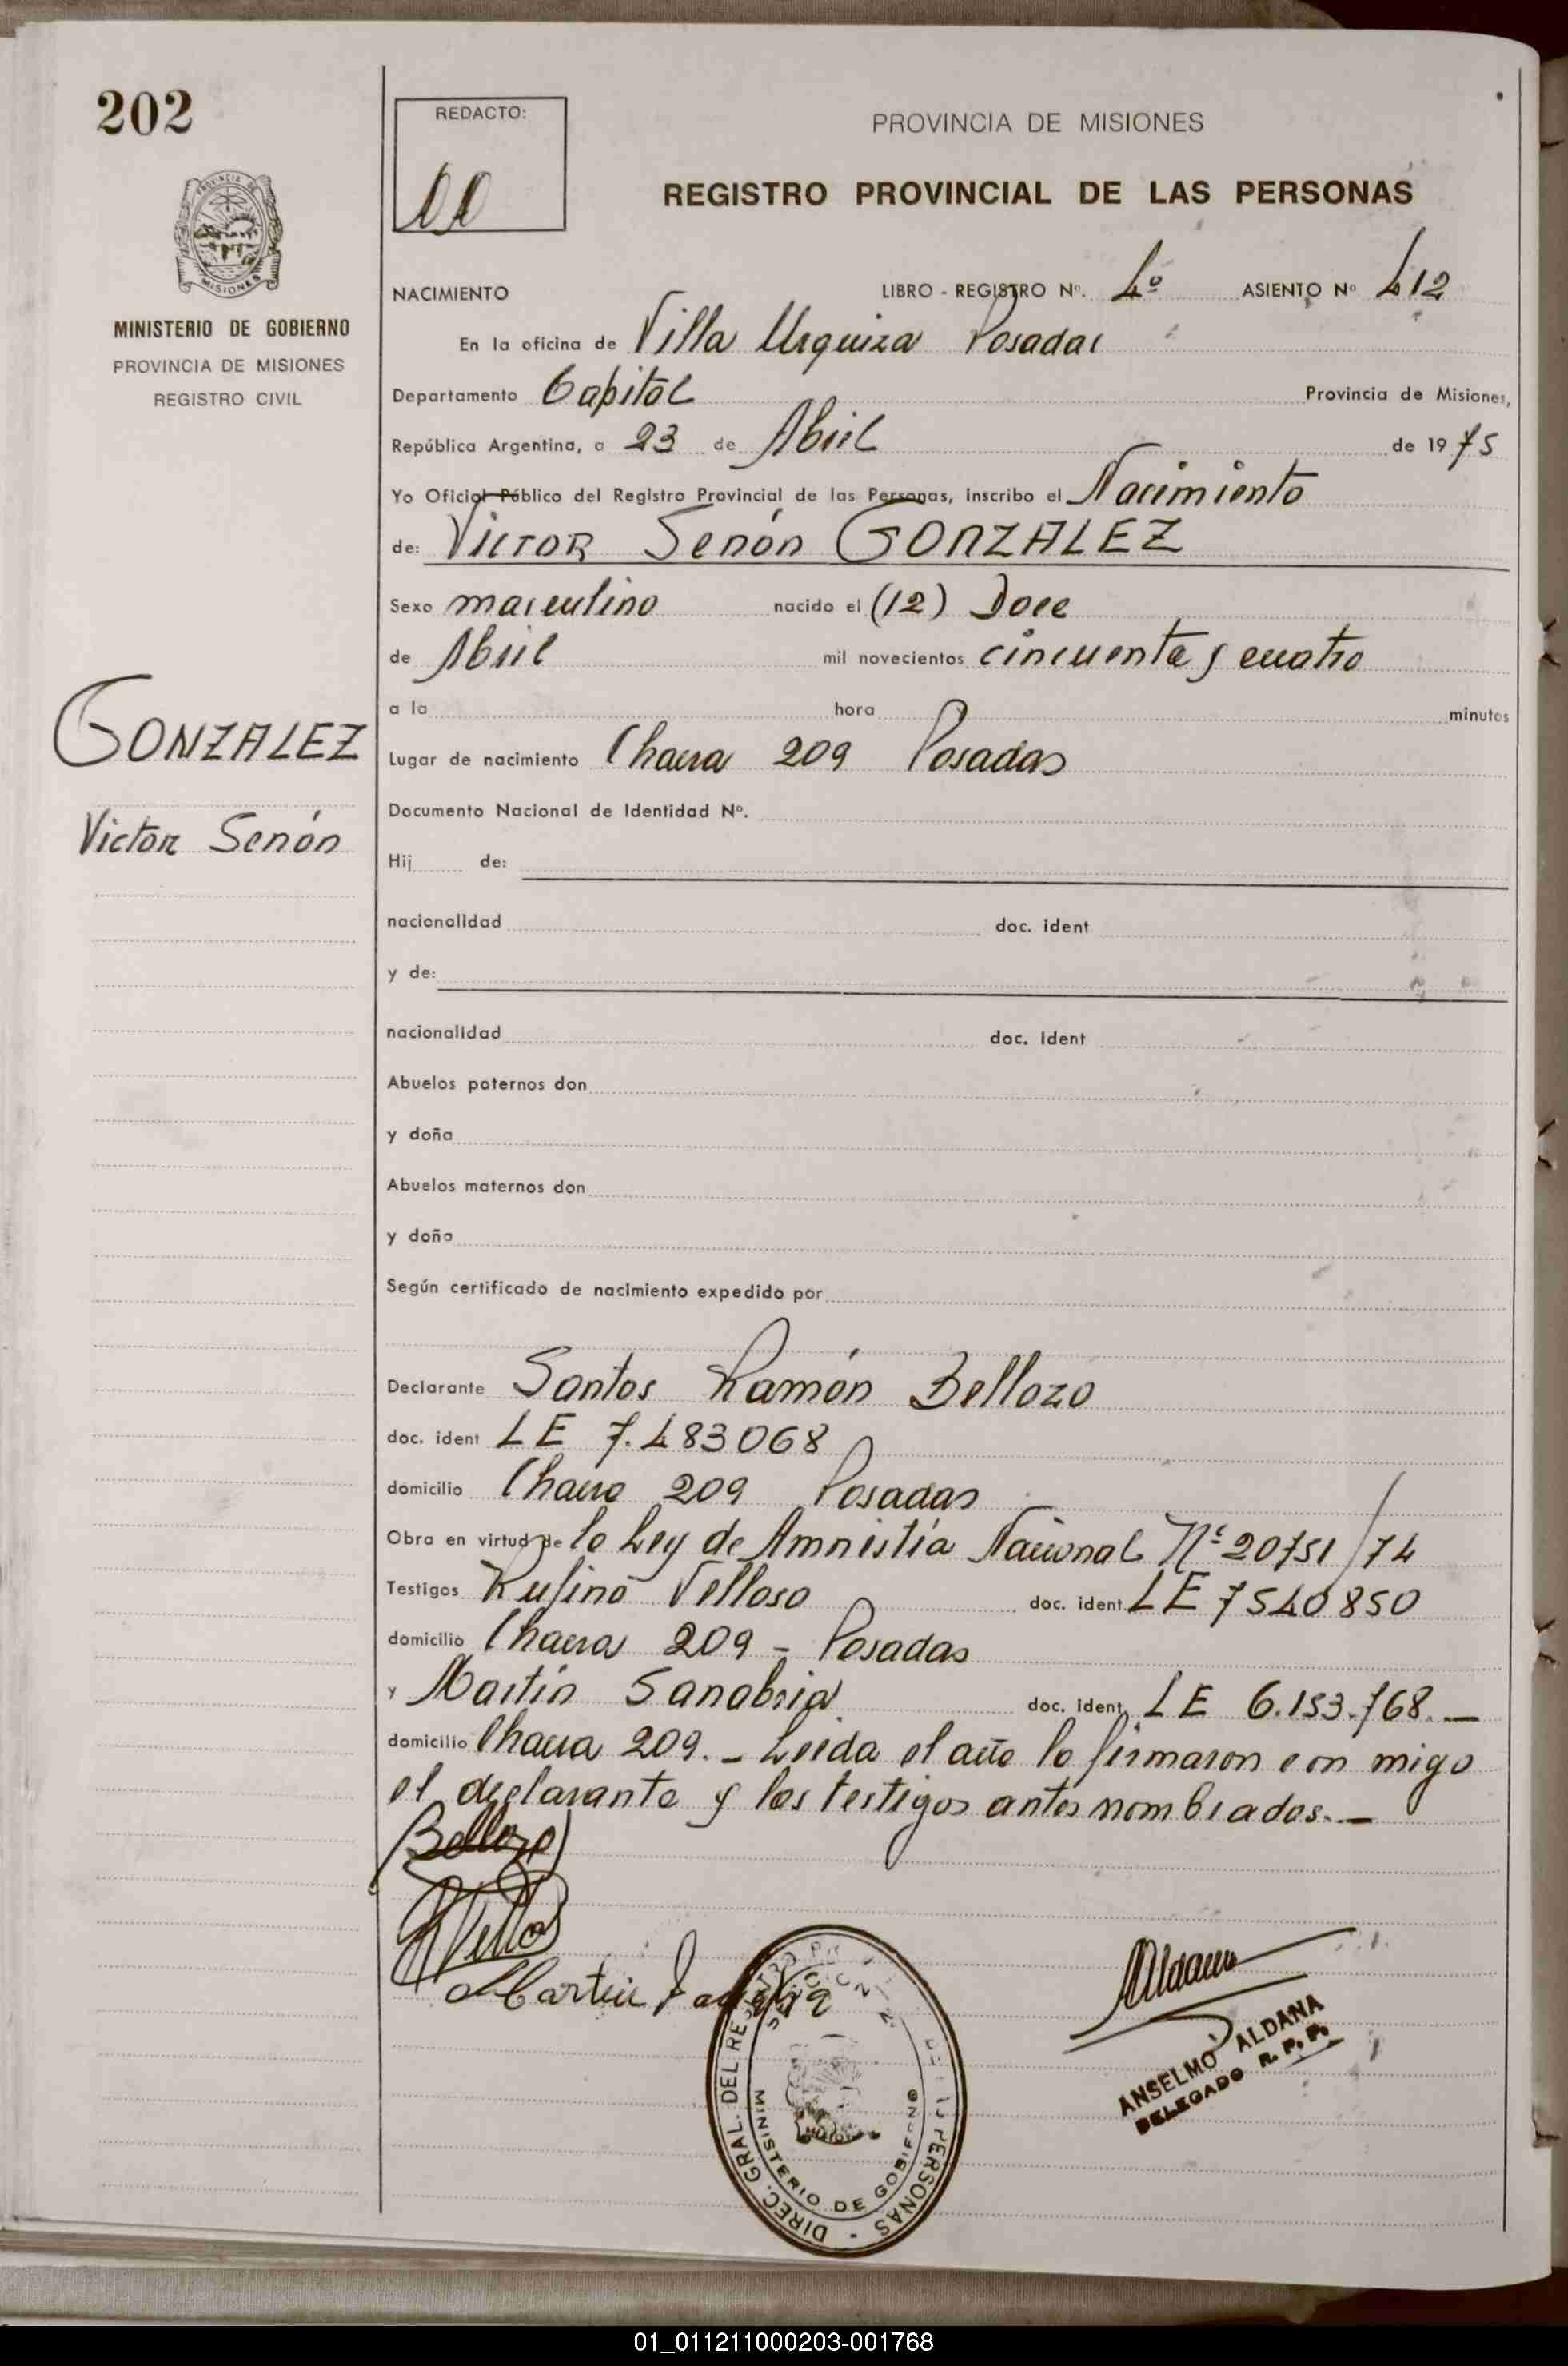 202
REDACTO:
PROVINCIA DE MISIONES
REGISTRO PROVINCIAL DE LAS PERSONAS
MISIONES
MINISTERIO DE GOBIERNO
PROVINCIA DE MISIONES
REGISTRO CIVIL
NACIMIENTO LIBRO - REGISTRO Nº. 4º ASIENTO Nº 412
En la oficina de Villa Urquiza Posadas
Departamento Capital Provincia de Misiones,
República Argentina, a 23 de Abril de 1975
Yo Oficial Público del Registro Provincial de las Personas, inscribo el Nacimiento
de: Victor Senón GONZALEZ
Sexo masculino nacido el (12) Doce
de Abril mil novecientos cincuenta y cuatro
a la hora minutos
GONZALEZ
Victor Senón
Lugar de nacimiento Chacra 209 Posadas
Documento Nacional de Identidad Nº.
Hij de:
nacionalidad doc. ident
y de:
nacionalidad doc. Ident
Abuelos paternos don
y doña
Abuelos maternos don
y doña
Según certificado de nacimiento expedido por
Declarante Santos Ramón Bellozo
doc. ident LE 7.483068
domicilio Chacra 209 Posadas
Obra en virtud de la Ley de Amnistía Nacional Nº 20751/74
Testigos Rufino Velloso doc. ident. LE 7540850
domicilio Chacra 209 - Posadas
y Martín Sanabria doc. ident. LE 6.153.768. —
domicilio Chacra 209. - Leida el acta lo firmaron con migo
el declarante y los testigos antes nombrados. —
Bellozo
Martin
Aldana
ANSELMO ALDANA
DELEGADO R. P. P.
DIREC. GRAL. DEL REGISTRO DE LAS PERSONAS
MINISTERIO DE GOBIERNO
01_011211000203-001768